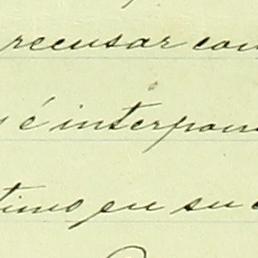 recusar con
é interpon
timo en su